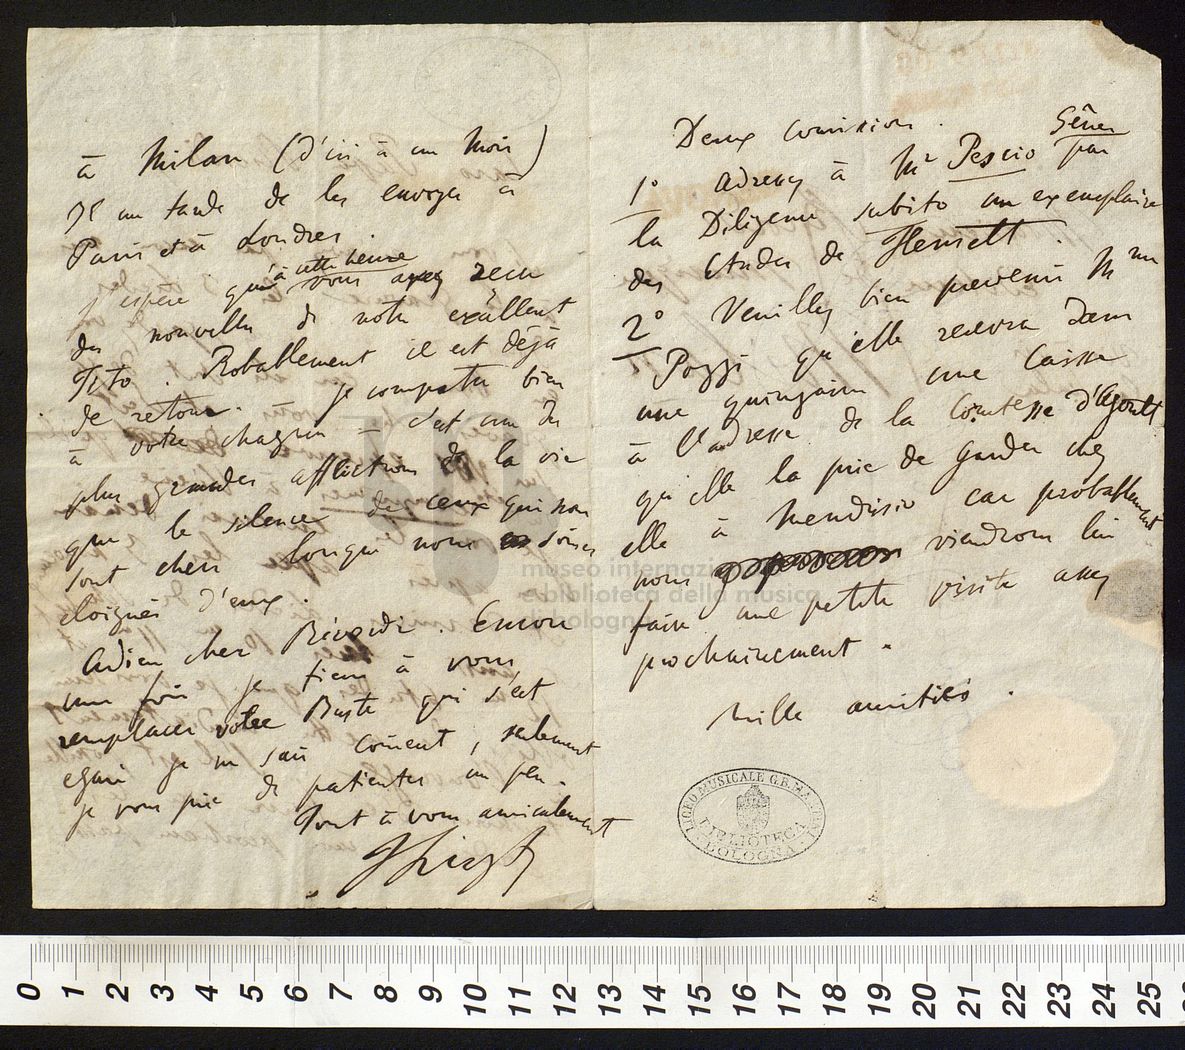 à Milan (d'ici à un Mois)
Il me tarde de les envoyer à
Paris et à Londres.
J'espère qu'à cette heure vous avez reçu
des nouvelles de notre excellent
Tito. Probablement il est déjà
de retour. Je compatis bien
à votre chagrin – c'est une des
plus grandes afflictions de la vie
que le silence de ceux qui nous
sont chers lorsque nous sommes
éloignés d'eux.
Adieu cher Ricordi. Encore
une fois je tiens à vous
remplacer votre Buste qui s'est
egaré je ne sais coment, seulement
je vous prie de patienter un peu.
Tout à vous amicalement
FLiszt
Deux comissions.
1° Adressez à Mr Pescio Gênes par
la Diligence subito un exemplaire
des Etudes de Henselt.
2° Veuillez bien prevenir Mme
Pozzi qu'elle recevra dans
une quinzaine une Caisse
à l'adresse de la Comtesse d'Agoult
qu'elle la prie de garder chez
elle à Mendrisio car probablement
nous viendrons lui
faire une petite visite assez
prochainement.
Mille amitiés.
LICEO MUSICALE G.B. MARTINI
BIBLIOTECA
BOLOGNA
museo internazionale
e biblioteca della musica
di bologna
0 1 2 3 4 5 6 7 8 9 10 11 12 13 14 15 16 17 18 19 20 21 22 23 24 25